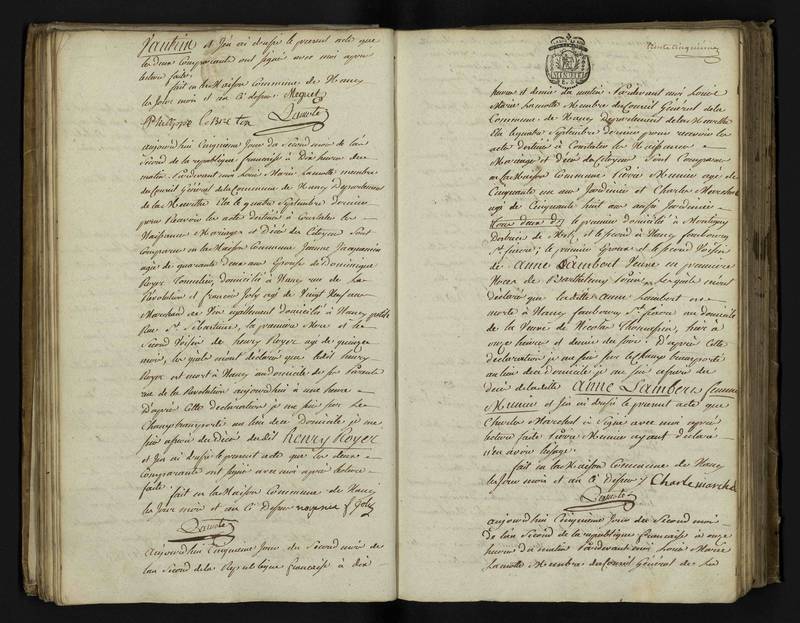 Vautrin et J'en ai dressé le present acte que
les deux Comparants ont signé avec moi après
lecture faite.
fait en la Maison Commune de Nancy
les Jour mois et an Cy dessus Meguet
Philippe
Lamotte
aujourd'hui Cinquieme Jour du Second mois de l'an
Second de la republique francaise à Dix heures du
matin Pardevant moi Louis Marie Lamotte membre
du Conseil Général de la Commune de Nancy Département
de la Meurthe Elu le quatre Septembre dernier
pour Recevoir les acte destinés à Constater les
Naissance Mariage et Décès des Citoyens Sont
Comparus en la Maison Commune Jeanne
agée de quarante deux ans Epouse de Dominique
Royer Tonnelier, domiciliés à Nancy rue de la
Révolution et francois Joly agé de Vingt Neuf ans
Marchand de Vin également domicilié à Nancy petite
Rue St Sébastien, la premiere Mere et le
Second Voisin de henry Royer agé de quinze
mois, les quels mont déclaré que ledit henry
Royer est mort à Nancy au domicile de ses Parents
rue de la Revolution aujourd'hui à une heure
D'après Cette déclaration je me suis sur le
Champ transporté au lieu du Domicile je me
suis assuré du Décès dudit Henry Royer
et J'en ai Dressé le present acte que les deux
Comparants ont signé avec moi après lecture
faite.
fait en la Maison Commune de Nancy
les Jour mois et an Cy dessus f Joly
Lamotte
Aujourd'hui Cinquieme Jour du Second mois de
lan Second de la Republique francaise à dix
trente cinquieme
heures et demie du matin Pardevant moi Louis
Marie Lamotte Membre du Conseil Général de la
Commune de Nancy Département de la Meurthe
Elu le quatre Septembre dernier pour recevoir les
acte destinés à Constater les Naissance
Mariage et Décès des Citoyens Sont Comparus
en la Maison Commune Pierre Meunier agé de
Cinquante un ans Jardinier et Charles Marchal
agé de Cinquante huit ans aussi Jardinier
le premier domicilié à Montigny
de Metz, et le second à Nancy faubourg
St fiacre; le premier Gendre et le second Voisin
de anne Lambert Veuve en premiere
Noces de Barthelemy les quels mont
déclaré que ladite anne Lambert est
morte à Nancy faubourg St fiacre au domicile
de la Veuve de Nicolas Thouvenin, hier à
onze heures et demie du soir: D'après Cette
déclaration je me suis sur le Champ transporté
au lieu du domicile je me suis assuré du
décès de ladite anne Lambert femme
Meunier et J'en ai Dressé le present acte que
Charles Marchal à Signé avec moi après
lecture faite Pierre Meunier ayant déclaré
n'en avoir l'usage.
fait en la Maison Commune de Nancy
les Jour mois et an Cy dessus Charle marchal
Lamotte
aujourd'hui Cinquieme Jour du Second mois
de l'an Second de la republique francaise à onze
heures du matin Pardevant moi Louis Marie
Lamotte Membre du Conseil Général de la